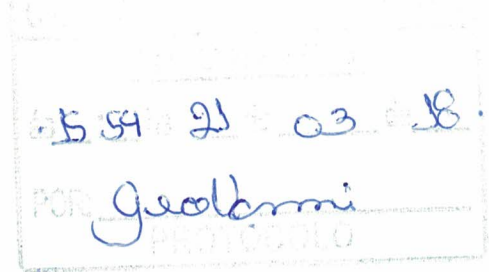 15 54 21 03 18.
POR: Geovanni
PROTOCOLO